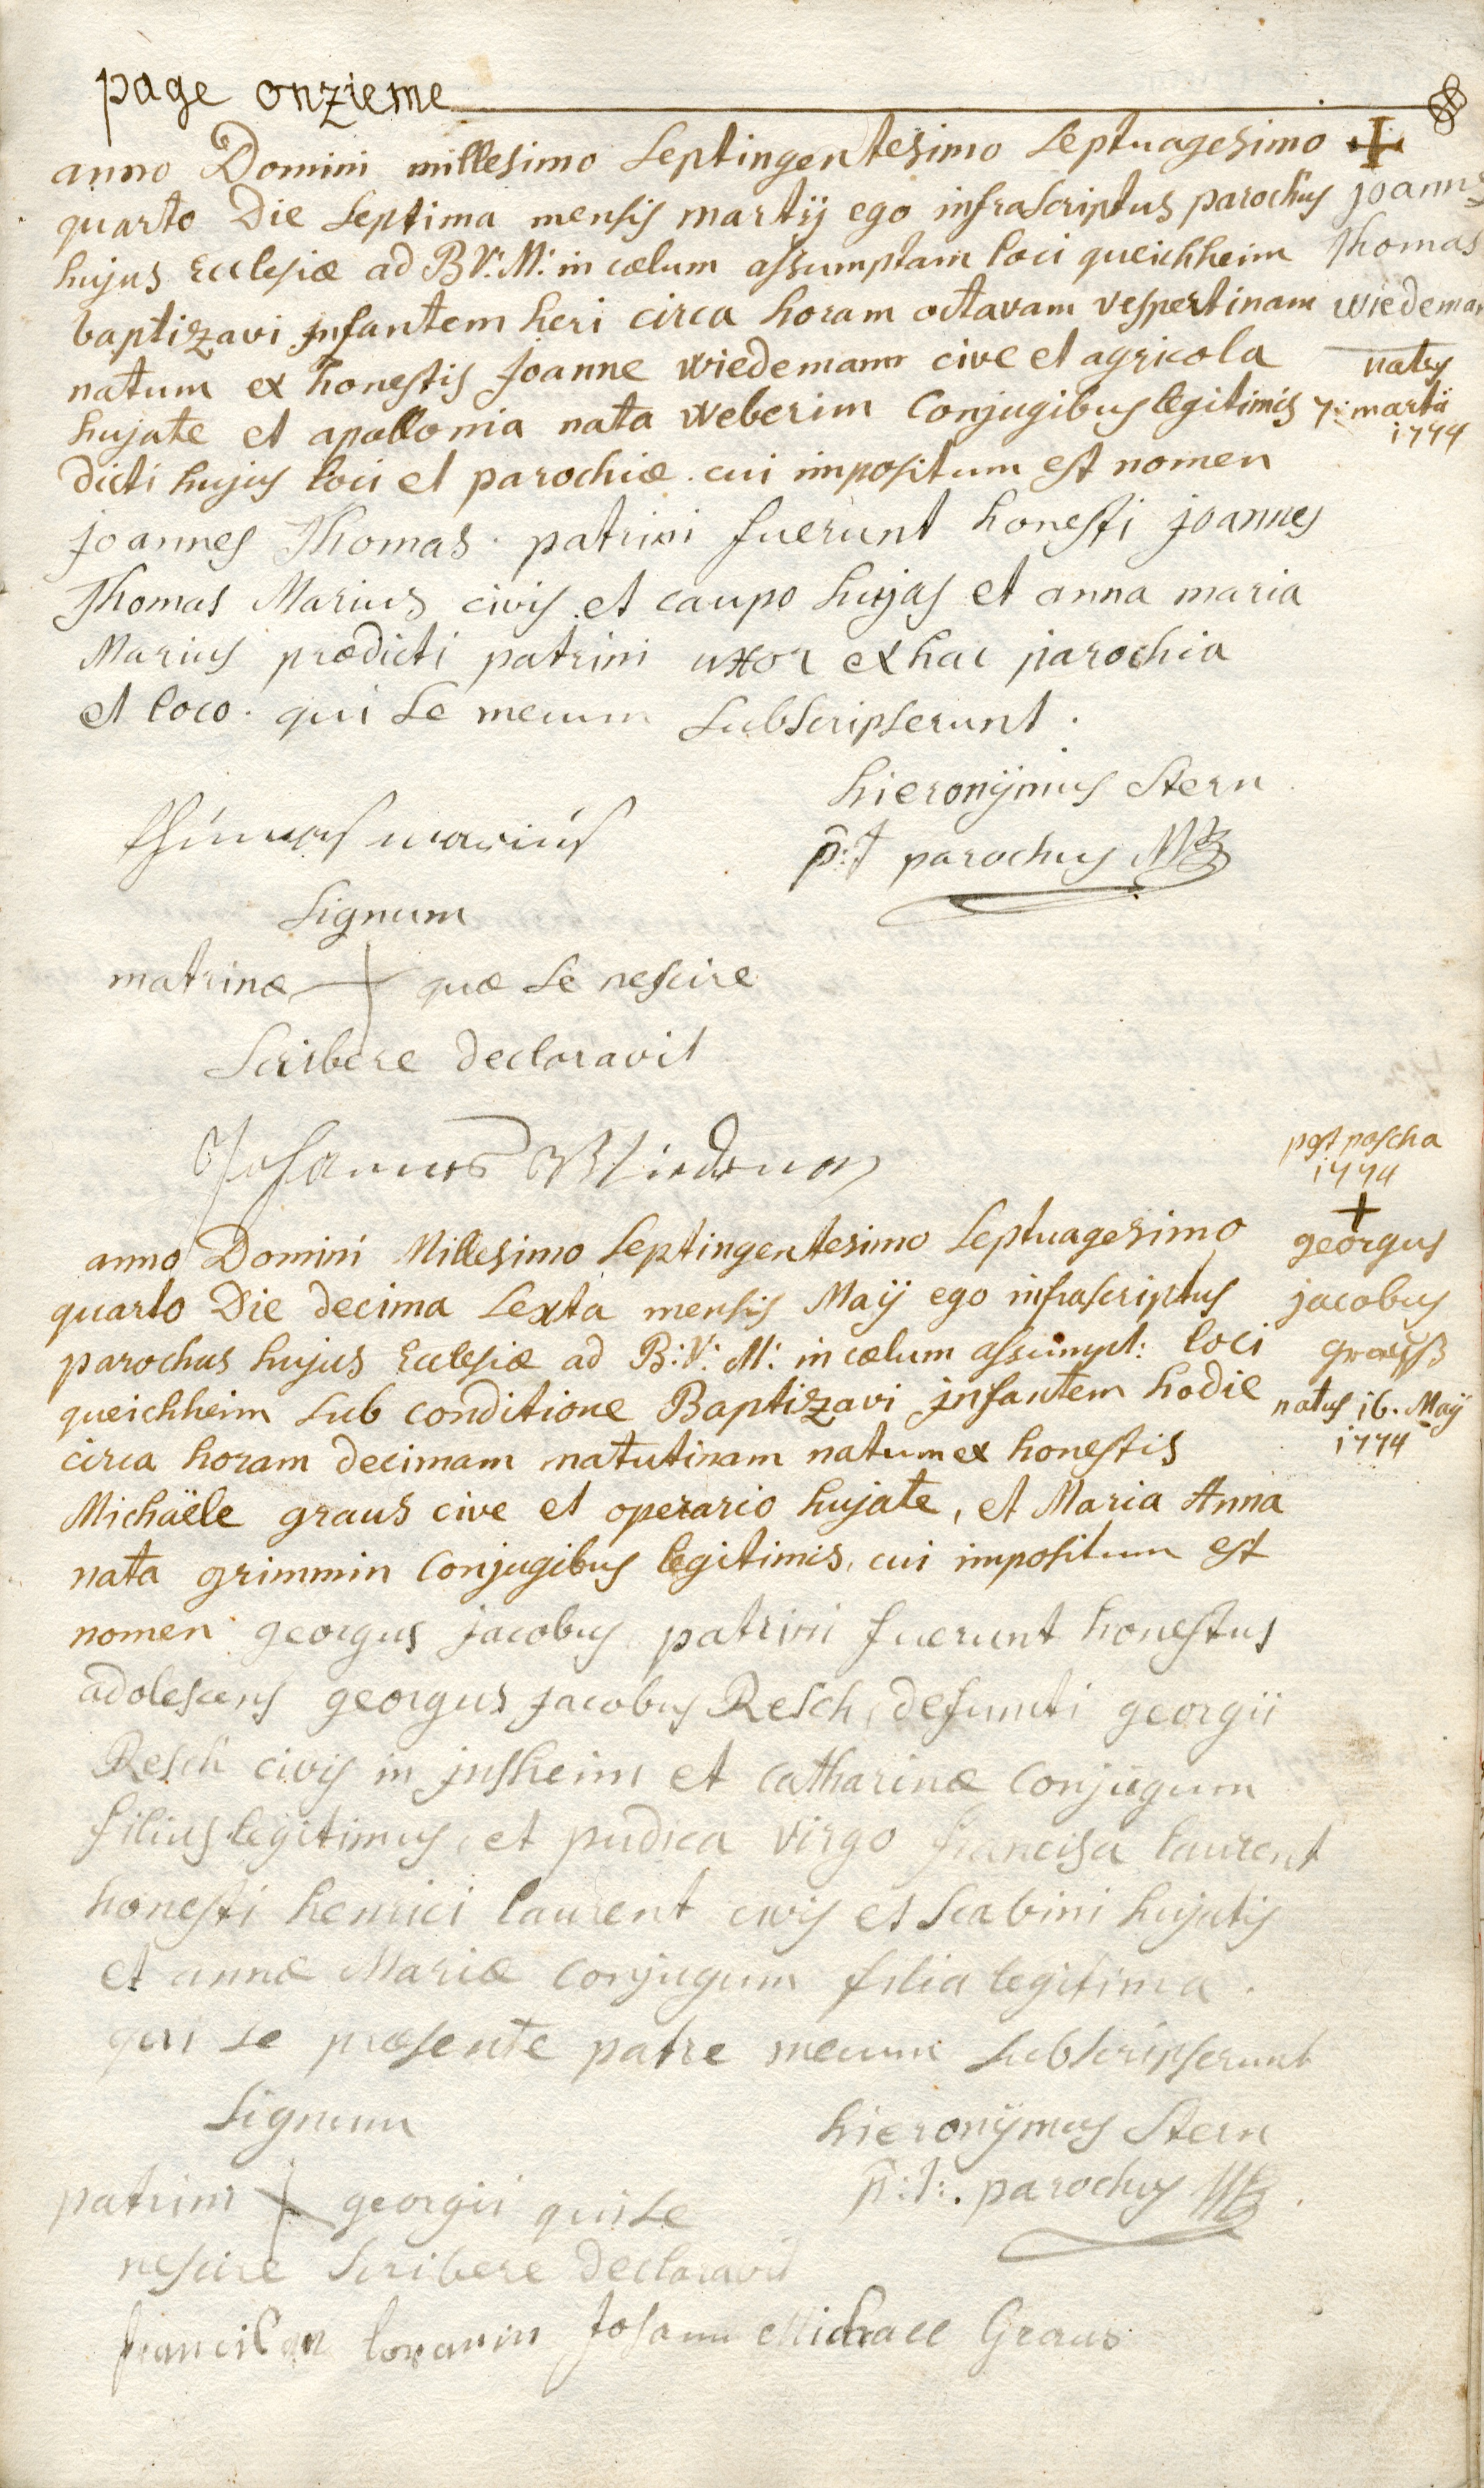 page onzieme
anno Domini millesimo septingentesimo septuagesimo
quarto Die septima mensis martij ego infrascriptus parochus
hujus Ecclesiæ ad B V: M: in cælum assumptam loci queichheim
baptizavi jnfantem heri circa horam octavam vespertinam
natum ex honestis joanne wiedemann cive et agricola
hujate et apollonia nata weberin Conjugibus legitimis
dicti hujus loci et parochiæ. cui impositum est nomen
joannes Thomas. patrini fuerunt honesti joannes
Thomas Marius civis et caupo hujas et anna maria
Marius prædicti patrini uxor ex hac parochia
et loco. qui se mecum subscripserunt.
+
joannes
Thomas
wiedeman
natus
7: martii
1774
hieronijmus Stern
p: t parochus
marius
signum
matrinæ + quæ se nescire
scribere declaravit
post pascha
1774
+
georgus
jacobus
grauß
natus 16. Maij
1774
anno Domini Millesimo septingentesimo septuagesimo
quarto Die decima sexta mensis Maij ego infrascriptus
parochus hujus Ecclesiæ ad B: V: M: in cælum assumpt: loci
queichheim sub conditione Baptizavi jnfantem hodie
circa horam decimam matutinam natum ex honestis
Michaële graus cive et operario hujate, et Maria Anna
nata grimmin Conjugibus legitimis, cui impositum est
nomen georgus jacobus patrini fuerunt honestus
adolescens georgus jacobus Resch, defuncti georgii
Resch civis in jnsheim et catharinæ conjugum
filius legitimus, et pudica virgo francisca laurent
honesti henrici laurent civis et scabini hujatis
et annæ Mariæ conjugum filia legitima.
qui se præsente patre mecum subscripserunt
signum
patrini + georgii qui se
nescire scribere declaravit
hieronijmus Stern
p: t: parochus
Johann Michaell Graus